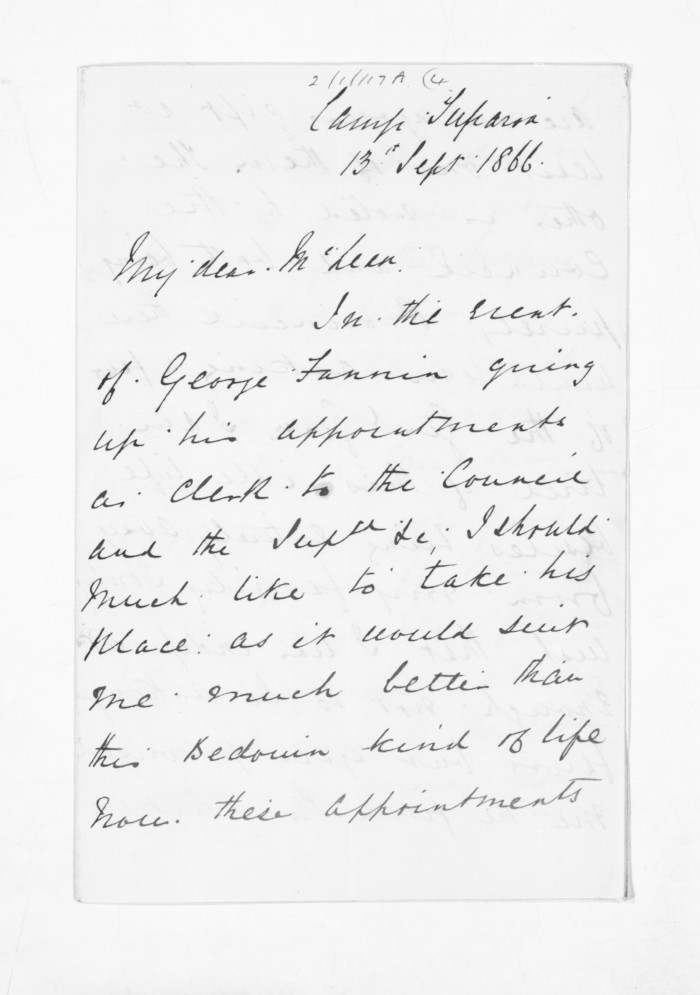 2/1/117A (4
Camp Tuparoa
13th Sept 1866.
My dear McLean.
In the event.
of George Fannin giving
up his appointments
as Clerk to the Council
and the Supt &c; I should
much like to take his
place: as it would suit
me much better than
this Bedouin kind of life
now. these appointments